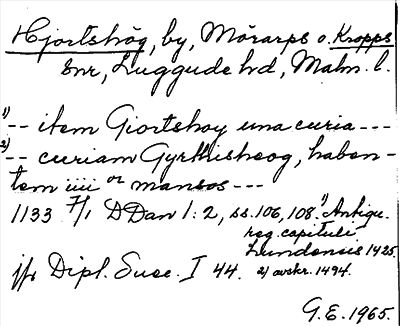 Hjortshög, by, Mörarps o. Kropps
snr, Luggude hd, Malm. l.
1) -- item Giortshoy una curia ---
2) -- curiam Gyrthisheog, haben-
tem iiii or mansos ---
1133 7/1 DDan 1:2, ss. 106, 108. 1) Antiqu.
reg. capituli
Lundensis 1425.
jfr Dipl. Suec. I 44. 2) avskr. 1494.
G.E. 1965.